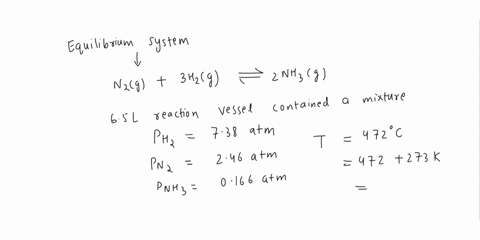 Equilibrium system
↓
N₂(g) + 3H₂(g) ⇌ 2NH₃(g)
6.5L reaction vessel contained a mixture
P_H₂ = 7.38 atm
T = 472°C
P_N₂ = 2.46 atm
= 472 + 273 K
P_NH₃ = 0.166 atm
=